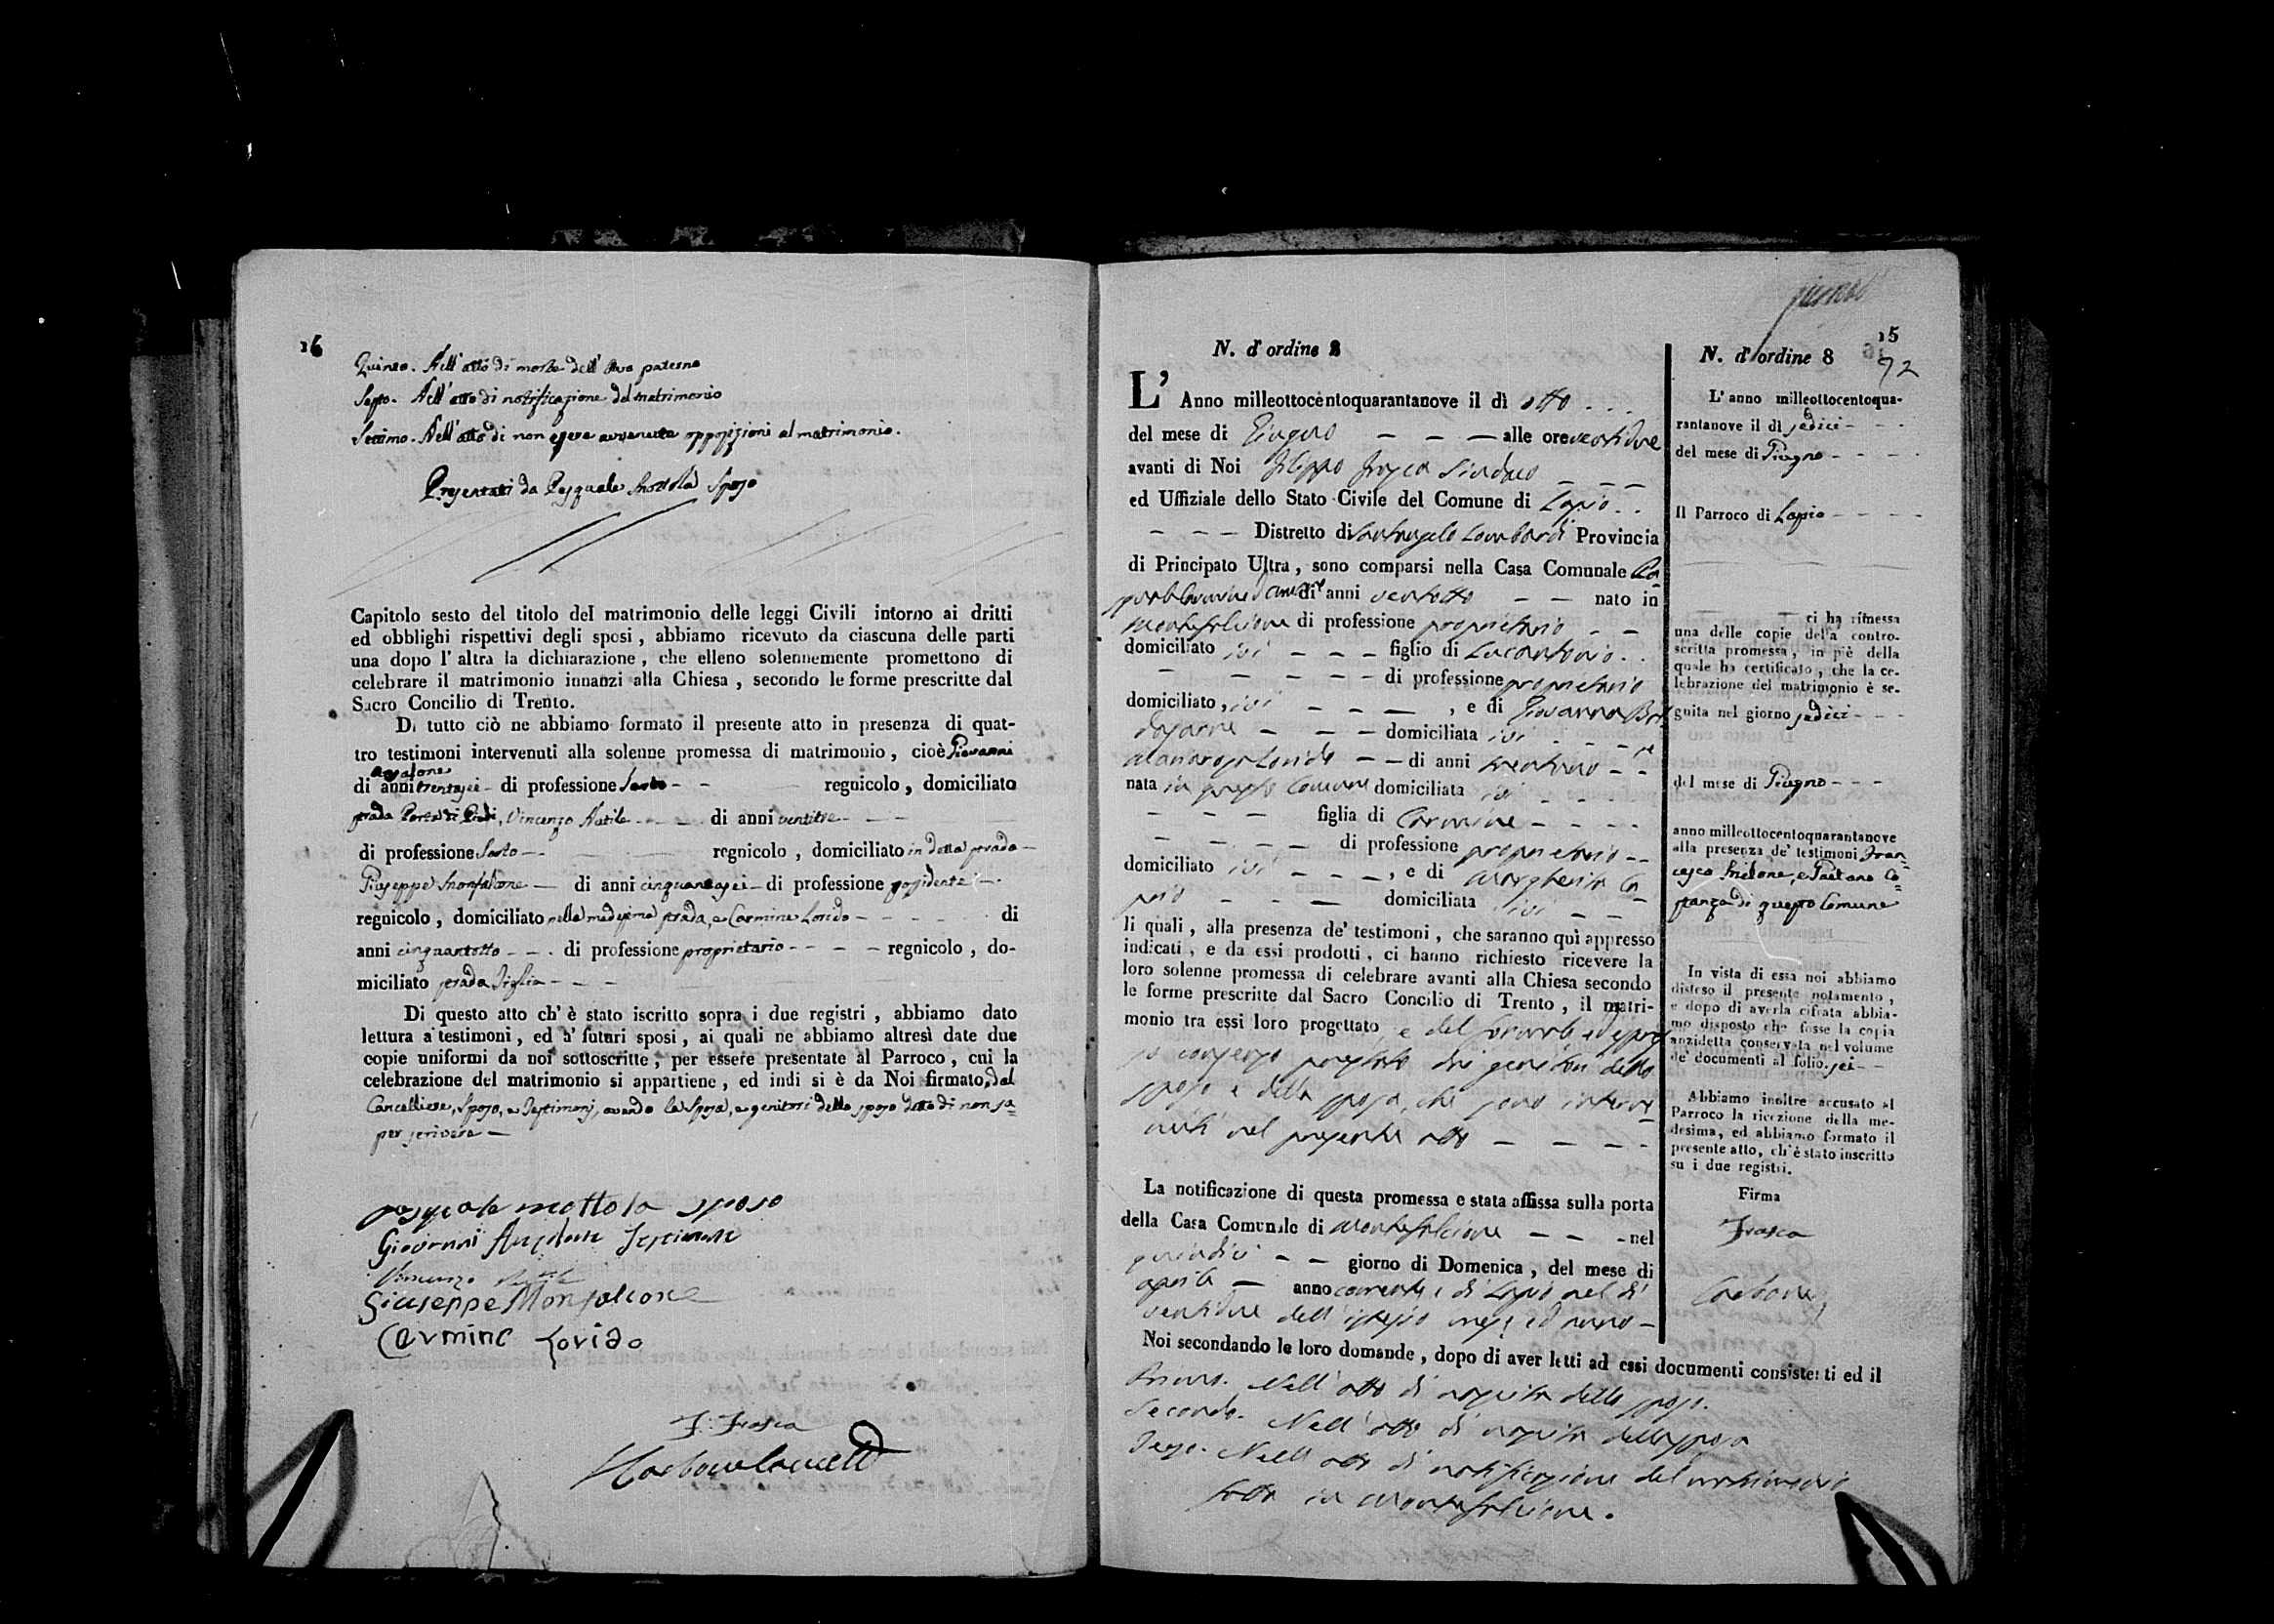 16
Quinto. Nell' atto di morte dell' Avo paterno
Sesto. Nell' atto di notificazione del matrimonio
Settimo. Nell' atto di non essere avvenute opposizioni al matrimonio.
Presentati da Pasquale Mottola Sposo
Capitolo sesto del titolo del matrimonio delle leggi Civili intorno ai dritti
ed obblighi rispettivi degli sposi, abbiamo ricevuto da ciascuna delle parti
una dopo l' altra la dichiarazione, che elleno solennemente promettono di
celebrare il matrimonio innanzi alla Chiesa, secondo le forme prescritte dal
Sacro Concilio di Trento.
Di tutto ciò ne abbiamo formato il presente atto in presenza di quat-
tro testimoni intervenuti alla solenne promessa di matrimonio, cioè Giovanni
di anni trentasei di professione Sarto regnicolo, domiciliato
strada Porta di Piedi, Vincenzo di anni ventitre
di professione Sarto regnicolo, domiciliato in detta strada
Giuseppe Monfalcone di anni cinquantasei di professione possidente
regnicolo, domiciliato nella medesima strada, e Carmine Lorido di
anni cinquantotto di professione proprietario regnicolo, do-
miciliato strada
Di questo atto ch' è stato iscritto sopra i due registri, abbiamo dato
lettura a' testimoni, ed a' futuri sposi, ai quali ne abbiamo altresì date due
copie uniformi da noi sottoscritte, per essere presentate al Parroco, cui la
celebrazione del matrimonio si appartiene, ed indi si è da Noi firmato, dal
Cancelliere, Sposo, e Testimonj, avendo la Sposa, e genitori dello sposo detto di non sa=
per scrivere
pasquale mottola sposo
Giovanni Testimone
Vincenzo
Giuseppe Monfalcone
Carmine Lorido
F. Frasca
N. d' ordine 8
L' Anno milleottocentoquarantanove il dì otto
del mese di Giugno alle ore ventidue
avanti di Noi Filippo Frasca Sindaco
ed Uffiziale dello Stato Civile del Comune di Lapio
Distretto di Santangelo Lombardi Provincia
di Principato Ultra, sono comparsi nella Casa Comunale
di anni ventotto nato in
Montefalcione di professione proprietario
domiciliato ivi figlio di Lucantonio
di professione proprietario
domiciliato, ivi, e di Giovanna
domiciliata ivi
Lorido di anni
nata in questo Comune domiciliata ivi
figlia di Carmine
di professione proprietario
domiciliato ivi, e di Margherita
domiciliata ivi
li quali, alla presenza de' testimoni, che saranno quì appresso
indicati, e da essi prodotti, ci hanno richiesto ricevere la
loro solenne promessa di celebrare avanti alla Chiesa secondo
le forme prescritte dal Sacro Concilio di Trento, il matri-
monio tra essi loro progettato, e del formale ed espres
so consenso prestato dai genitori dello
sposo e della sposa, che sono interve
nuti nel presente atto
La notificazione di questa promessa e stata affissa sulla porta
della Casa Comunale di Montefalcione nel
quindici giorno di Domenica, del mese di
aprile anno corrente, e di Lapio nel dì
ventidue dell' istesso mese ed anno
Noi secondando le loro domande, dopo di aver letti ad essi documenti consistenti ed il
Primo. Nell' atto di nascita dello sposo.
Secondo. Nell' atto di nascita della sposa
Terzo. Nell' atto di notificazione del matrimonio
fatta in Montefalcione.
15
92
N. d' ordine 8
L' anno milleottocentoqua-
rantanove il dì sedici
del mese di Giugno
Il Parroco di Lapio
ci ha rimessa
una delle copie della contro-
scritta promessa, in piè della
quale ha certificato, che la ce-
lebrazione del matrimonio è se-
guita nel giorno sedici
del mese di Giugno
anno milleottocentoquarantanove
alla presenza de' testimoni Fran=
cesco e Gaetano Co=
stanza di questo Comune
In vista di essa noi abbiamo
disteso il presente notamento,
e dopo di averla cifrata abbia-
mo disposto che fosse la copia
anzidetta conservata nel volume
de' documenti al folio sei
Abbiamo inoltre accusato al
Parroco la ricezione della me-
desima, ed abbiamo formato il
presente atto, ch' è stato inscritto
su i due registri.
Firma
Frasca
Carbone